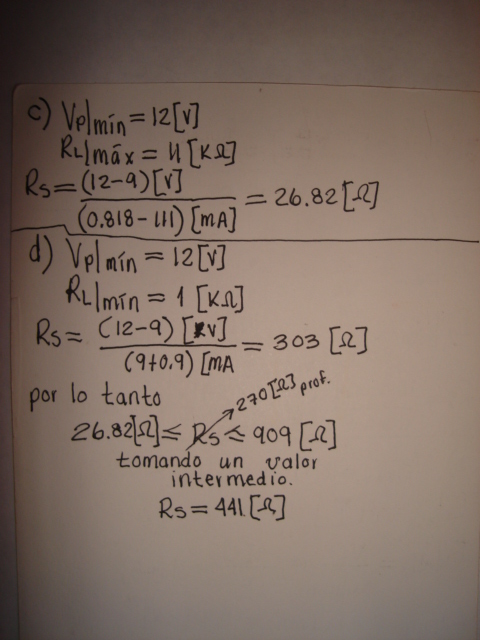 c) Vp|mín = 12[V]
RL|máx = 11 [KΩ]
Rs = (12-9)[V] / (0.818-111)[mA] = 26.82[Ω]
d) Vp|mín = 12[V]
RL|mín = 1 [KΩ]
Rs = (12-9) [V] / (9+0.9)[mA = 303 [Ω]
por lo tanto
270[Ω] prof.
26.82[Ω] ≤ Rs ≤ 909 [Ω]
tomando un valor
intermedio.
Rs = 441 [Ω]